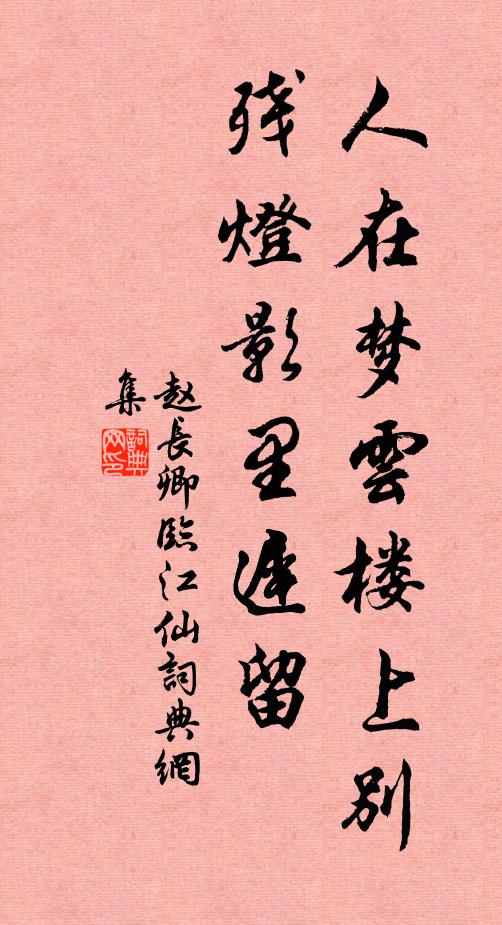 人在梦雲楼上别
残燈影里遅留
赵長卿臨江仙詞典網
集
詞典网印